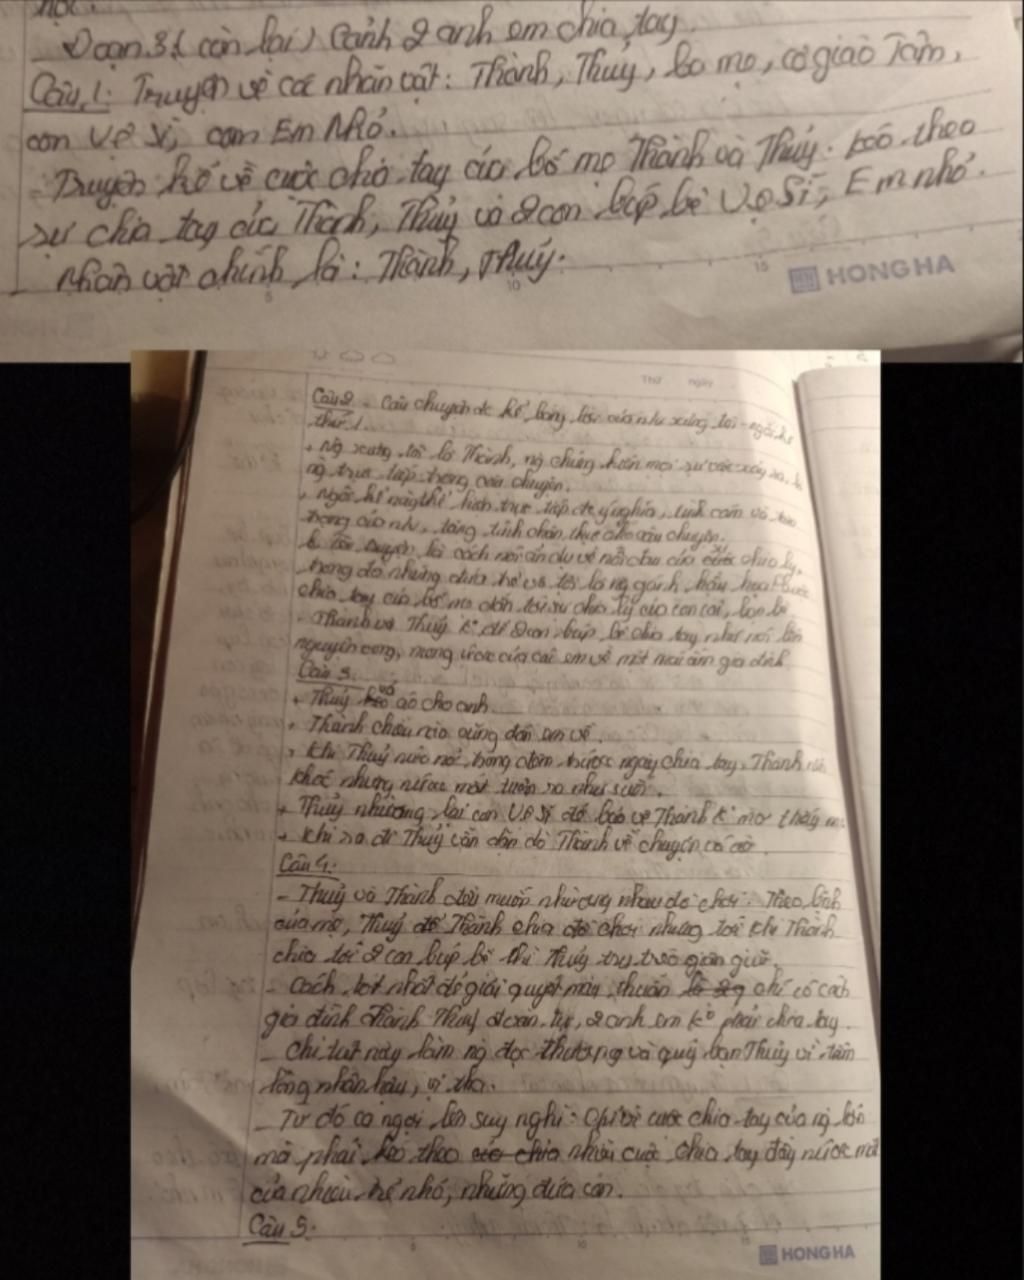 Đoạn 3: (còn lại) Cảnh 2 anh em chia tay.
Câu 1: Truyện về các nhân vật: Thành, Thuỷ, bố mẹ, cô giáo Tâm,
con Vệ Sĩ, con Em Nhỏ.
- Truyện kể về cuộc chia tay của bố mẹ Thành và Thuỷ. kéo theo
sự chia tay của Thành, Thuỷ và 2 con búp bê Vệ Sĩ, Em nhỏ.
Nhân vật chính là: Thành, Thuỷ.
HONG HA
Thứ ngày
Câu 2 - Câu chuyện đc kể bằng lời của nhv xưng tôi - ngôi kể
thứ 1.
+ Ng xưng tôi là Thành, ng chứng kiến mọi sự việc xảy ra, là
ng trực tiếp trong câu chuyện.
+ Ngôi kể này thể hiện trực tiếp đc ý nghĩa, tình cảm và
trạng của nhv, tăng tính chân thực cho câu chuyện.
Tên truyện là cách nói ẩn dụ về nỗi đau của cuộc chia ly,
trong đó những đứa trẻ vô tội là ng gánh hậu hoạ. Cuộc
chia tay của bố mẹ dẫn tới sự chia ly của con cái, búp bê.
- Thành và Thuỷ k để 2 con búp bê chia tay như nói lên
nguyện vọng, mong ước của các em về một mái ấm gia đình
Câu 3.
+ Thuỷ vá áo cho anh.
+ Thành chiều nào cũng đón em về.
+ Khi Thuỷ nức nở trong đêm trước ngày chia tay, Thành
khóc nhưng nước mắt tuôn ra như suối.
+ Thuỷ nhường lại con Vệ Sĩ để bảo vệ Thành k mơ thấy ma
+ Khi ra đi Thuỷ vẫn dặn dò Thành về chuyện vá áo
Câu 4:
- Thuỷ và Thành đều muốn nhường nhau đồ chơi. Theo lệnh
của mẹ, Thuỷ để Thành chia đồ chơi nhưng tới khi Thành
chia tới 2 con búp bê thì Thuỷ tru tréo giận giữ.
- Cách tốt nhất để giải quyết mâu thuẫn chỉ có cách
gia đình Thành Thuỷ đoàn tụ, 2 anh em k phải chia tay.
- Chi tiết này làm ng đọc thương và quý bạn Thuỷ vì tấm
lòng nhân hậu, vị tha.
- Từ đó gợi lên suy nghĩ: Chỉ vì cuộc chia tay của ng lớn
mà phải kéo theo nhiều cuộc chia tay đầy nước mắt
của nhiều trẻ nhỏ, những đứa con.
Câu 5:
HONG HA